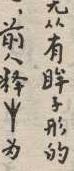 无从有眸子形的
前人释𠂇为